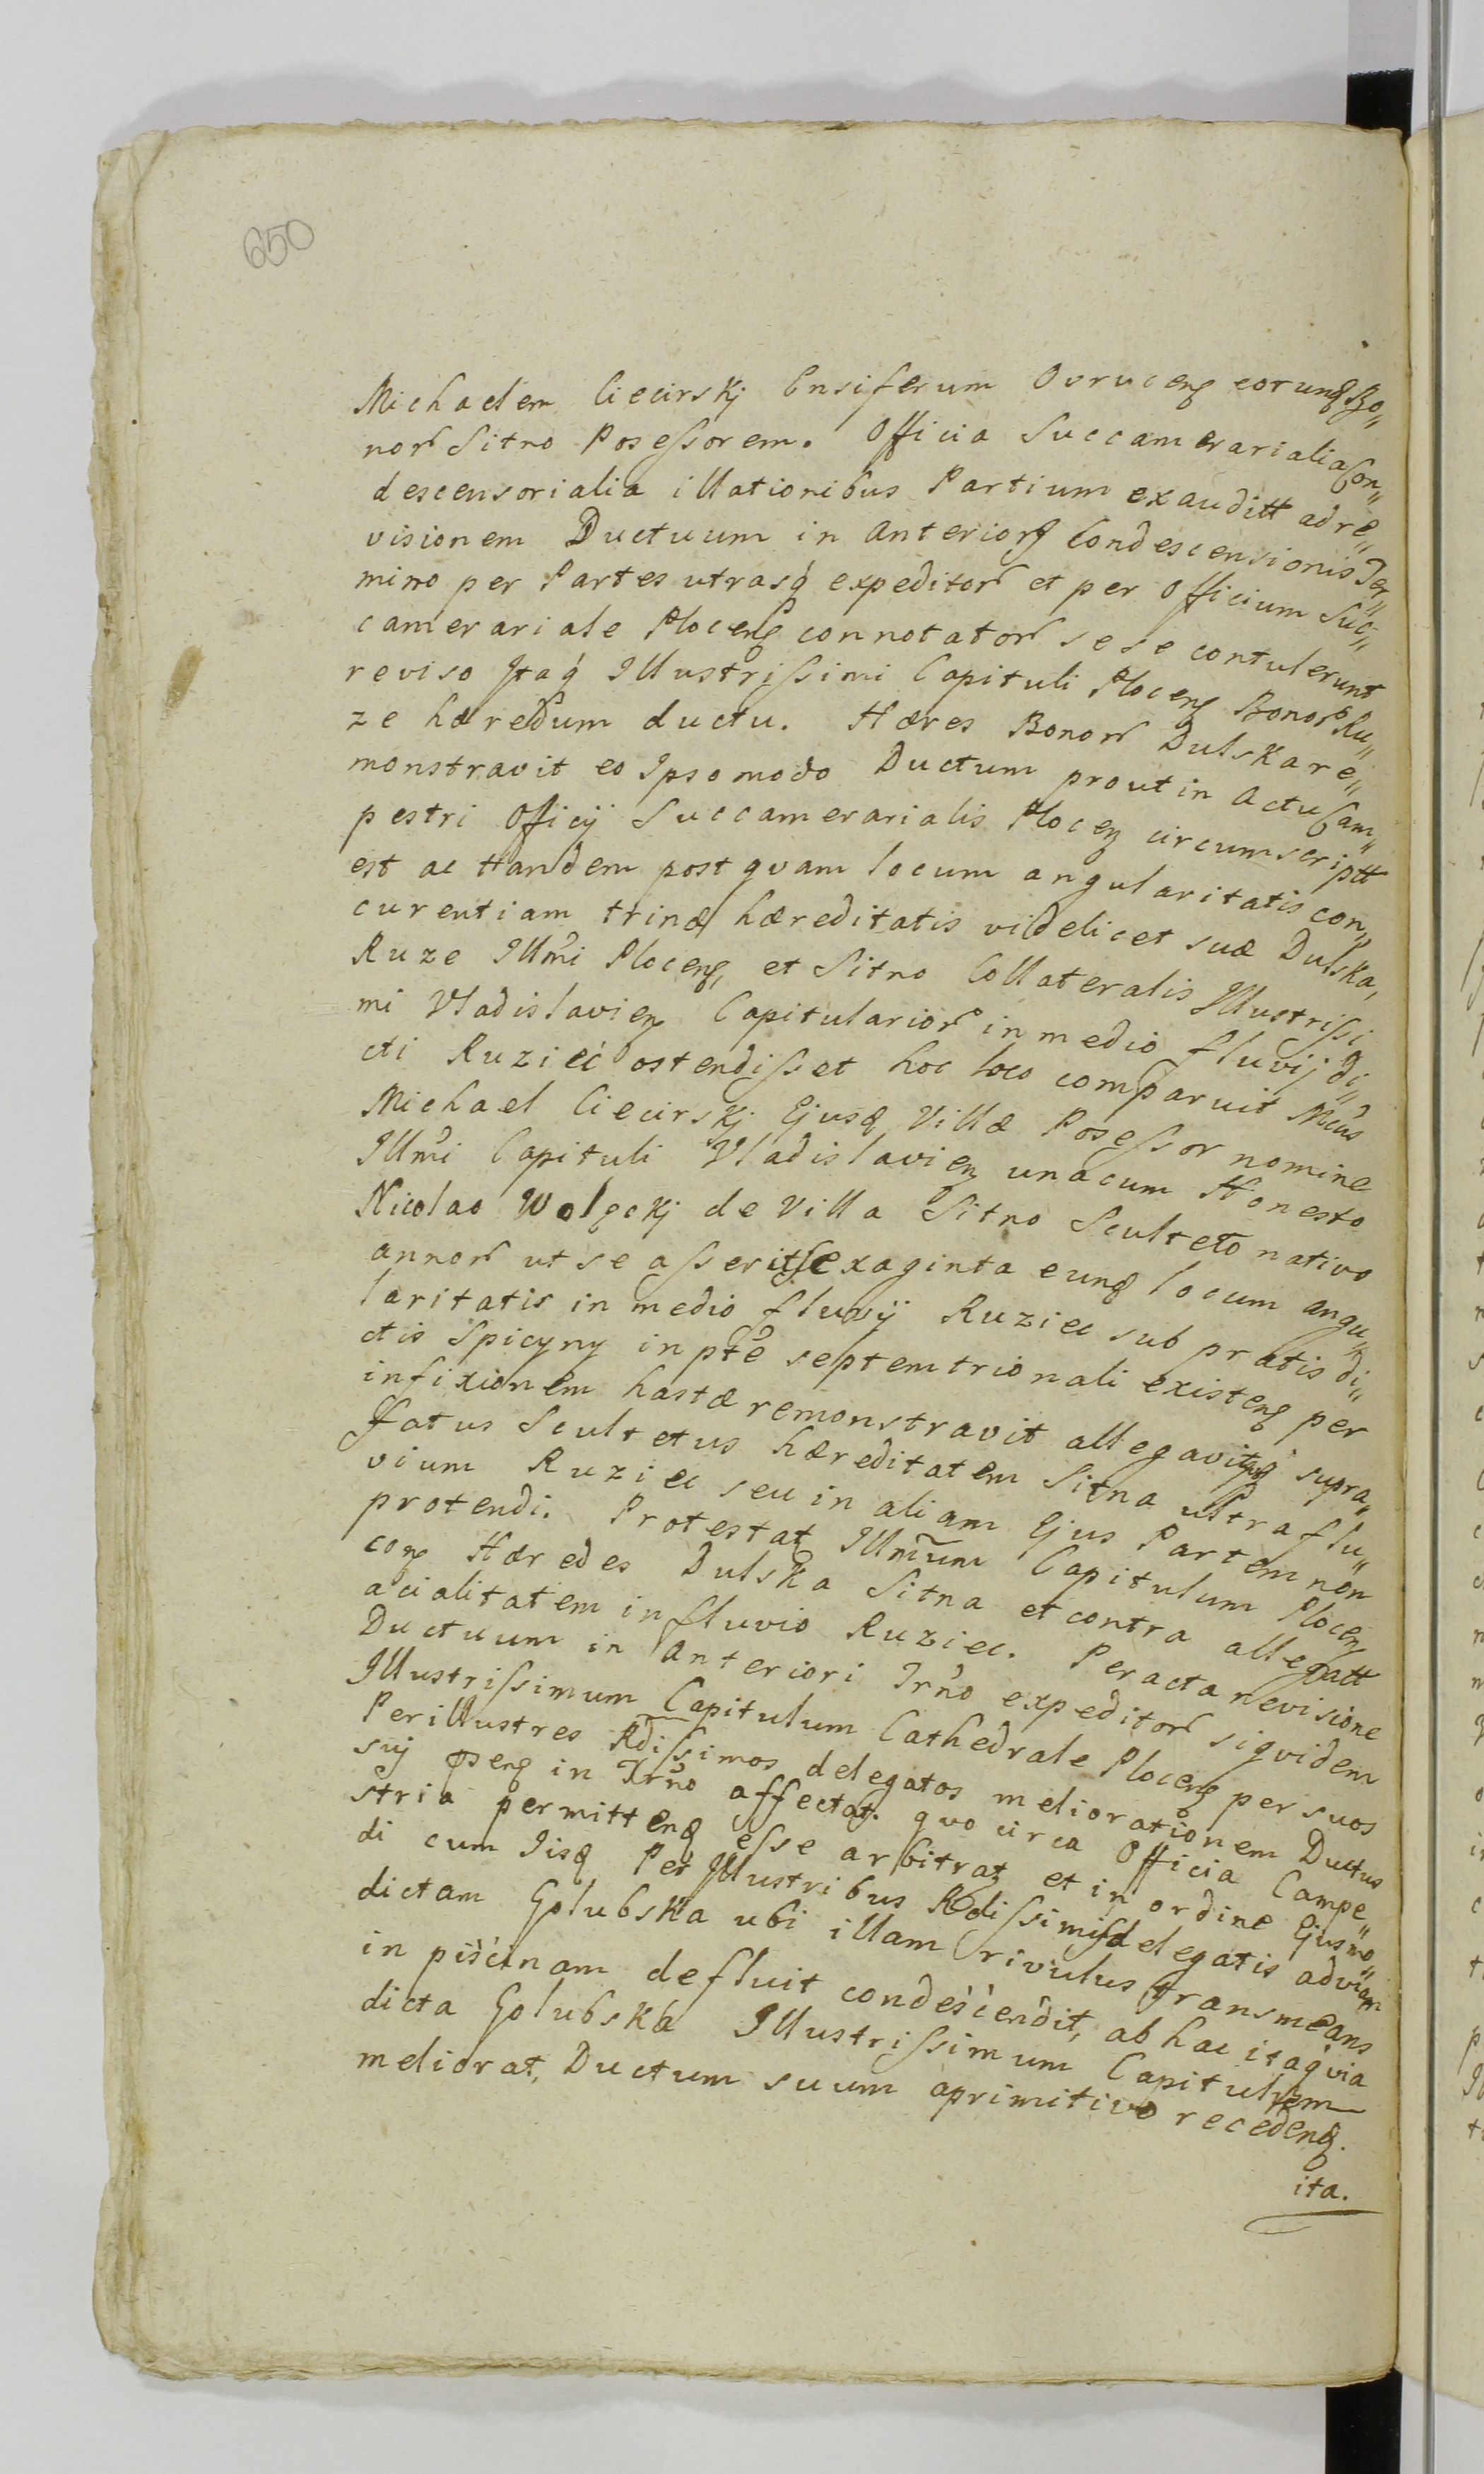 650
Michaelem Ciecirskj Ensiferum Ovruceñ eorunq Bo„
nor Sitno Poseſsorem. Officia Succamerarialia Con„
descensorialia illationibus Partium exauditt ad re„
visionem Ductuum in anteriorq Condescensionis Ter„
mino per Partes utrasq́ expeditor et per Officium Suc„
camerariale Plocenq connotator sese contulerunt
reviso Itaq́ Illustriſsimi Capituli Plocenq Bonor Ru„
ze hæredum ductu. Hæres Bonor Dulska re„
monstravit eo Ipso modo Ductum prout in Actu Cam„
pestri Officij Succamerarialis Plocenq circumscriptt
est ac tandem post qvam locum angularitatis con„
curentiam trinæ hæreditatis videlicet suæ Dulska,
Ruze Illmi Plocenq, et Sitno Collateralis Illustriſsi„
mi Vladislavienq Capitularior in medio fluvij di„
cti Ruziec ostendiſset hoc loco comparuit Mcus
Michael Ciecirskj Ejusq Villæ Poseſsor nomine
Illmi Capituli Vladislavienq unacum Honesto
Nicolao Wolęckj de Villa Sitno Sculteto nativo
annor ut se aſserit sexaginta eunq locum angu„
laritatis in medio fluvij Ruziec sub pratis di„
ctis Spicyny in pte septemtrionali existenq per
infixionem hastæ remonstravit allegavitq́ supra„
fatus Scultetus hæreditatem Sitna ultra flu„
vium Ruziec seu in aliam Ejus Partem non
protendi. Protestat Illmum Capitulum Plocenq
conq Hæredes Dulska Sitna et contra allegatt
acialitatem in fluvio Ruziec. Peracta revisione
Ductuum in Anteriori Trno expeditor siqvidem
Illustriſsimum Capitulum Cathedrale Plocenq per suos
Perillustres Rdiſsimos delegatos meliorationem Ductus
suj pñsenq in Trno affectat. qvo circa Officia Campe„
stria permittenq eſse arbitrat et in ordine Ejusmo„
di cum Iisq Per Illustribus Rdiſsimis delegatis ad viam
dictam Golubska ubi illam rivulus transmeans
in piscinam defluit condescendit, ab hac itaq́ via
dicta Golubska Illustriſsimum Capitulum
meliorat, Ductum suum a primitivo recedenq.
ita.